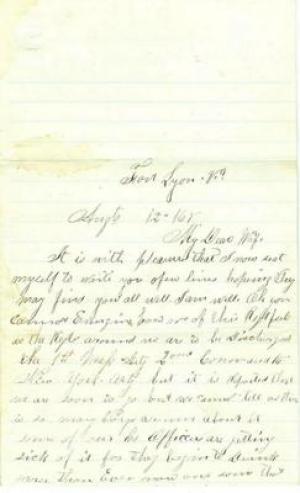 Fort Lyon Va
Augt 12-65
My Dear Wife
It is with pleasure that I now seat
myself to write you a few lines hoping they
may find you all well I am well Oh you
cannot how we of this Regt feel
as the Regts around us are to be discharged
the 1st Arty 2ond &
New York Arty but it is reported that
we are soon to go but we cannot tell as there
is so many about it
some of our Officers are getting
sick of it for they begin to drink
more than ever now one that